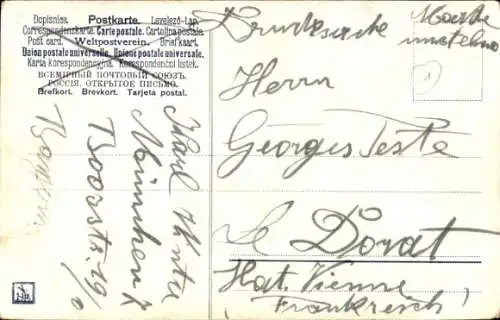 Dopisnica. Postkarte. Levelező-Lap.
Correspondenzkarte. Carte postale. Cartolina postale.
Post card. Weltpostverein. Briefkaart.
Union postale universelle. Unione postale universale.
Karta korespondencyjna. Korespondenční lístek.
ВСЕМІРНЫЙ ПОЧТОВЫЙ СОЮЗЪ.
РОССІЯ. ОТКРЫТОЕ ПИСЬМО.
Brefkort. Brevkort. Tarjeta postal.
Drucksache
Marke
Herrn
Georges Teste
Le Dorat
Hat. Vienne
Frankreich
Karl
München
19/0
Bayern